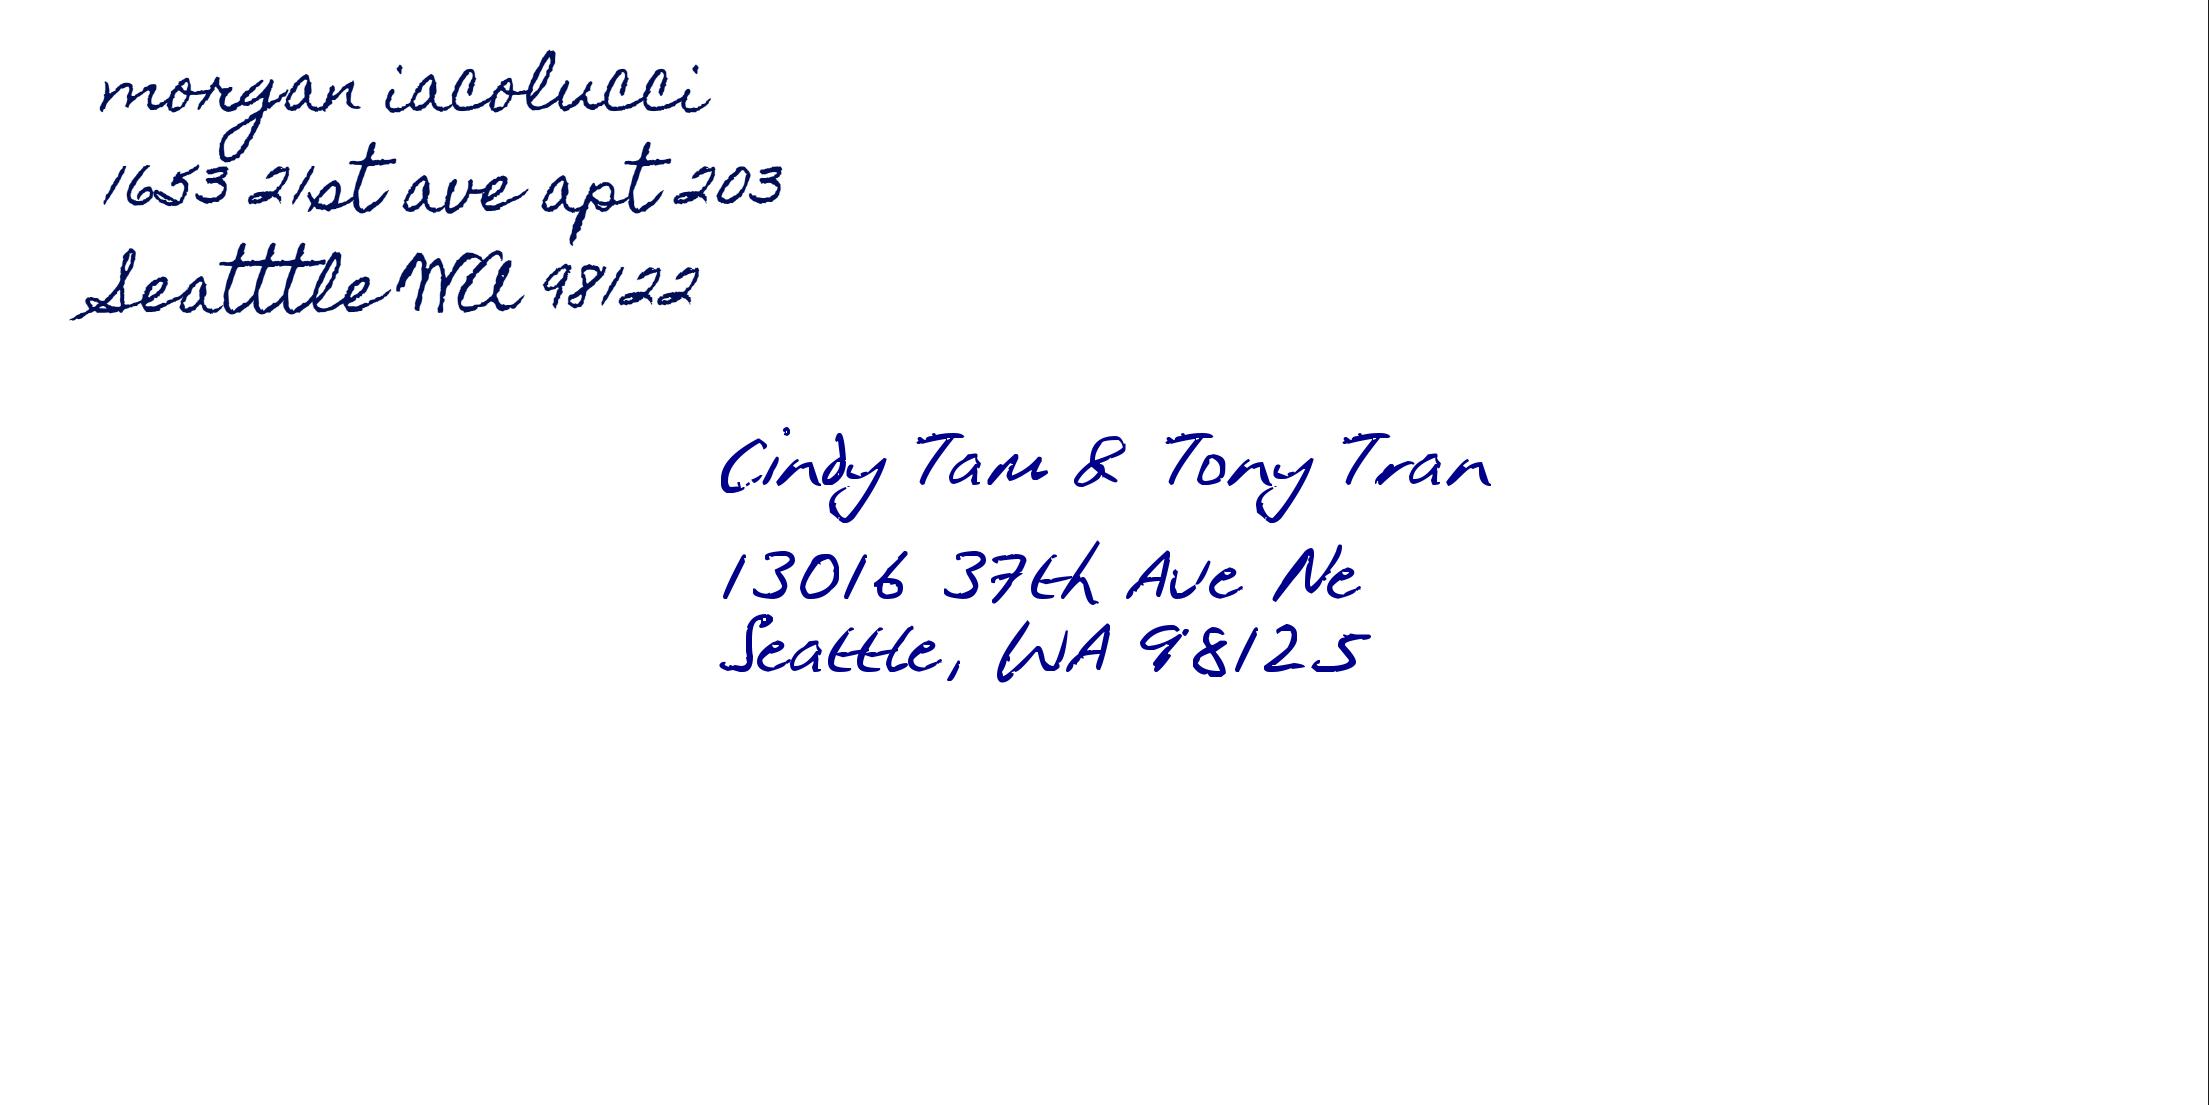 morgan iacolucci
1653 21st ave apt 203
Seatttle WA 98122
Cindy Tam & Tony Tran
13016 37th Ave Ne
Seattle, WA 98125